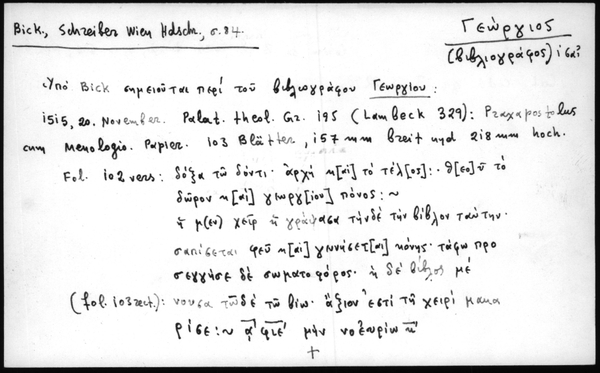 Bick, Schreiber Wien Hdschr., σ. 84.
Γεώργιος
(βιβλιογράφος) ις΄ αἰ
Ὑπὸ Bick σημειοῦται περὶ τοῦ βιβλιογράφου Γεωργίου:
1515, 20. November. Palat. theol. Gr. 195 (Lambeck 329): Praxapostolus
cum Menologio. Papier. 103 Blätter, 157 mm breit und 218 mm hoch.
Fol. 102 vers: δόξα τῶ δόντι· ἀρχὴ κ[αὶ] τὸ τέλ[ος]:· θ[εο]ῦ τὸ
δῶρον κ[αὶ] γεωργ[ίου] πόνος: ~
ἡ μ(εν) χεὶρ ἡ γράψασα τήνδε τὴν βίβλον ταύτην·
σαπίσεται φεῦ κ[αὶ] γεννήσετ[αι] κόνης· τάφω προ
σεγγήσε δὲ σωματοφόρος· ἡ δὲ βίβλος μέ
(fol. 103 rect.): νουσα τῶδε τῶ βίω· ἄξιον ἐστὶ τῆ χειρὶ μακα
ρίσε: ~ ͵αφιε΄ μὴν νοευρίω κ΄
+